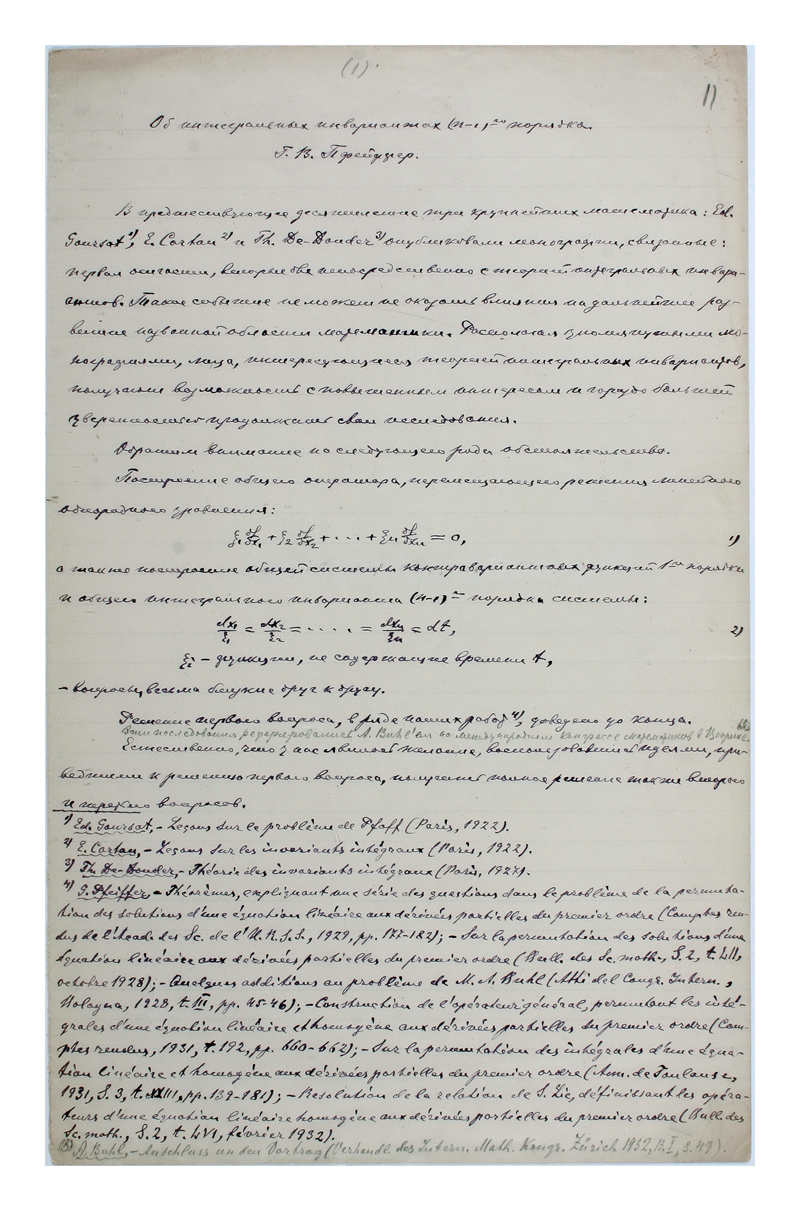 (1).
11
Об интегральных инвариантах (n-1)-го порядка.
Г. В. Пфейффер.
В предшествующее десятилетие три крупнейших математика: Ed.
Goursat 1), E. Cartan 2) и Th. De-Donder 3) опубликовали монографии, связанные:
первая отчасти, вторые две непосредственно с теорией интегральных инвари-
антов. Такое событие не может не оказать влияния на дальнейшее раз-
витие названной области математики. Располагая упомянутыми мо-
нографиями, лица, интересующиеся теорией интегральных инвариантов,
получают возможность с повышенным интересом и гораздо большей
уверенностью продолжать свои исследования.
Обратим внимание на следующего рода обстоятельство.
Построение общего оператора, перемещающего решения линейного
однородного уравнения:
ξ₁ ∂f/∂x₁ + ξ₂ ∂f/∂x₂ + ... + ξₙ ∂f/∂xₙ = 0, 1)
а также построение общей системы контравариантных функций 1-го порядка
и общего интегрального инварианта (n-1)-го порядка системы:
dx₁/ξ₁ = dx₂/ξ₂ = .... = dxₙ/ξₙ = dt, 2)
ξᵢ – функции, не содержащие времени t,
– вопросы, весьма близкие друг к другу.
Решение первого вопроса, в ряде наших работ 4), доведено до конца.
Эти исследования реферировались A. Buhl'ем на международном конгрессе математиков в Цюрихе
Естественно, что у нас явилось желание, воспользовавшись идеями, при-
ведшими к решению первого вопроса, получить полное решение также второго
и третьего вопросов.
1) Ed. Goursat, – Leçons sur le problème de Pfaff (Paris, 1922).
2) E. Cartan, – Leçons sur les invariants intégraux (Paris, 1922).
3) Th. De-Donder, – Théorie des invariants intégraux (Paris, 1927).
4) G. Pfeiffer, – Théorèmes, expliquant une série des questions dans le problème de la permuta-
tion des solutions d'une équation linéaire aux dérivées partielles du premier ordre (Comptes ren-
dus de l'Acad. des Sc. de l'U.R.S.S., 1929, pp. 177-182); – Sur la permutation des solutions d'une
équation linéaire aux dérivées partielles du premier ordre (Bull. des Sc. math., S. 2, t. LII,
octobre 1928); – Quelques additions au problème de M. A. Buhl (Atti del Congr. Intern.,
Bologna, 1928, t. III, pp. 45-46); – Construction de l'opérateur général, permutant les inté-
grales d'une équation linéaire et homogène aux dérivées partielles du premier ordre (Com-
ptes rendus, 1931, t. 192, pp. 660-662); – Sur la permutation des intégrales d'une équa-
tion linéaire et homogène aux dérivées partielles du premier ordre (Ann. de Toulouse,
1931, S. 3, t. XXIII, pp. 139-181); – Resolution de la relation de S. Lie, définissant les opéra-
teurs d'une équation linéaire homogène aux dérivées partielles du premier ordre (Bull. des
Sc. math., S. 2, t. LVI, février 1932).
5) A. Buhl, – Anschluss an den Vortrag (Verhandl. des Intern. Math. Kongr. Zürich 1932, B. I, S. 49).